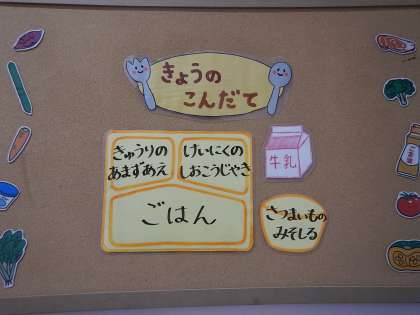 きょうの
こんだて
きゅうりの
あまずあえ
けいにくの
しおこうじやき
牛乳
ごはん
さつまいもの
みそしる